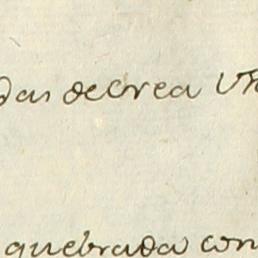 das de Crea
quebrada con